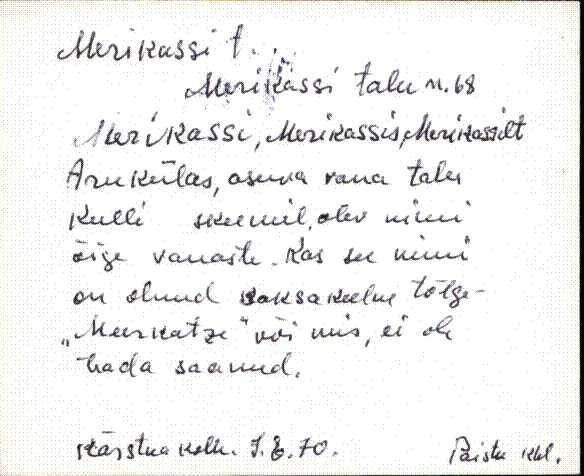 Merikassi t.
Merikassi talu n. 68
Merikassi, Merikassis, Merikassilt
Aru külas, asuva vana talu
Kulli skeemil, olev nimi
õige vanaste. Kas see nimi
on olnud saksakeelne tõlge-
„Meerkatze" või mis, ei ole
teada saanud.
Kärstna kolh. J. E. 70.
Paistu khl.